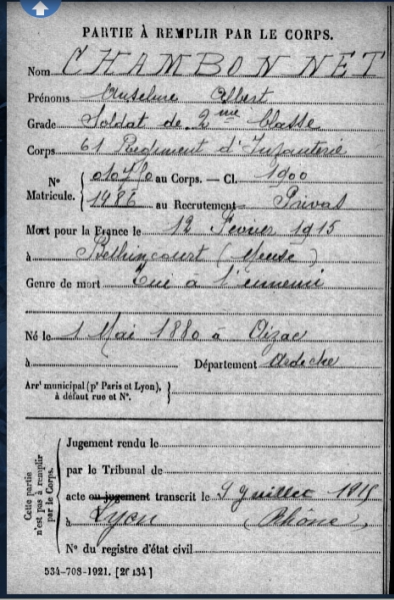 PARTIE À REMPLIR PAR LE CORPS.
Nom CHAMBONNET
Prénoms Anselme Albert
Grade Soldat de 2me Classe
Corps 61 Régiment d'Infanterie
N° au Corps. — Cl. 1900
Matricule. 1486 au Recrutement Privas
Mort pour la France le 12 Fevrier 1915
à Bethincourt (Meuse)
Genre de mort Tué à l'ennemi
Né le 1 Mai 1880 à Oizac
à Département Ardèche
Arrt municipal (pr Paris et Lyon),
à défaut rue et N°.
Cette partie n'est pas à remplir par le Corps.
Jugement rendu le
par le Tribunal de
acte ou jugement transcrit le 9 Juillet 1915
à Lyon Rhône
N° du registre d'état civil
534-708-1921. [26434]